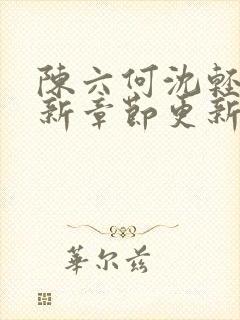 陳六何沈輕
新章節更新
華尔兹